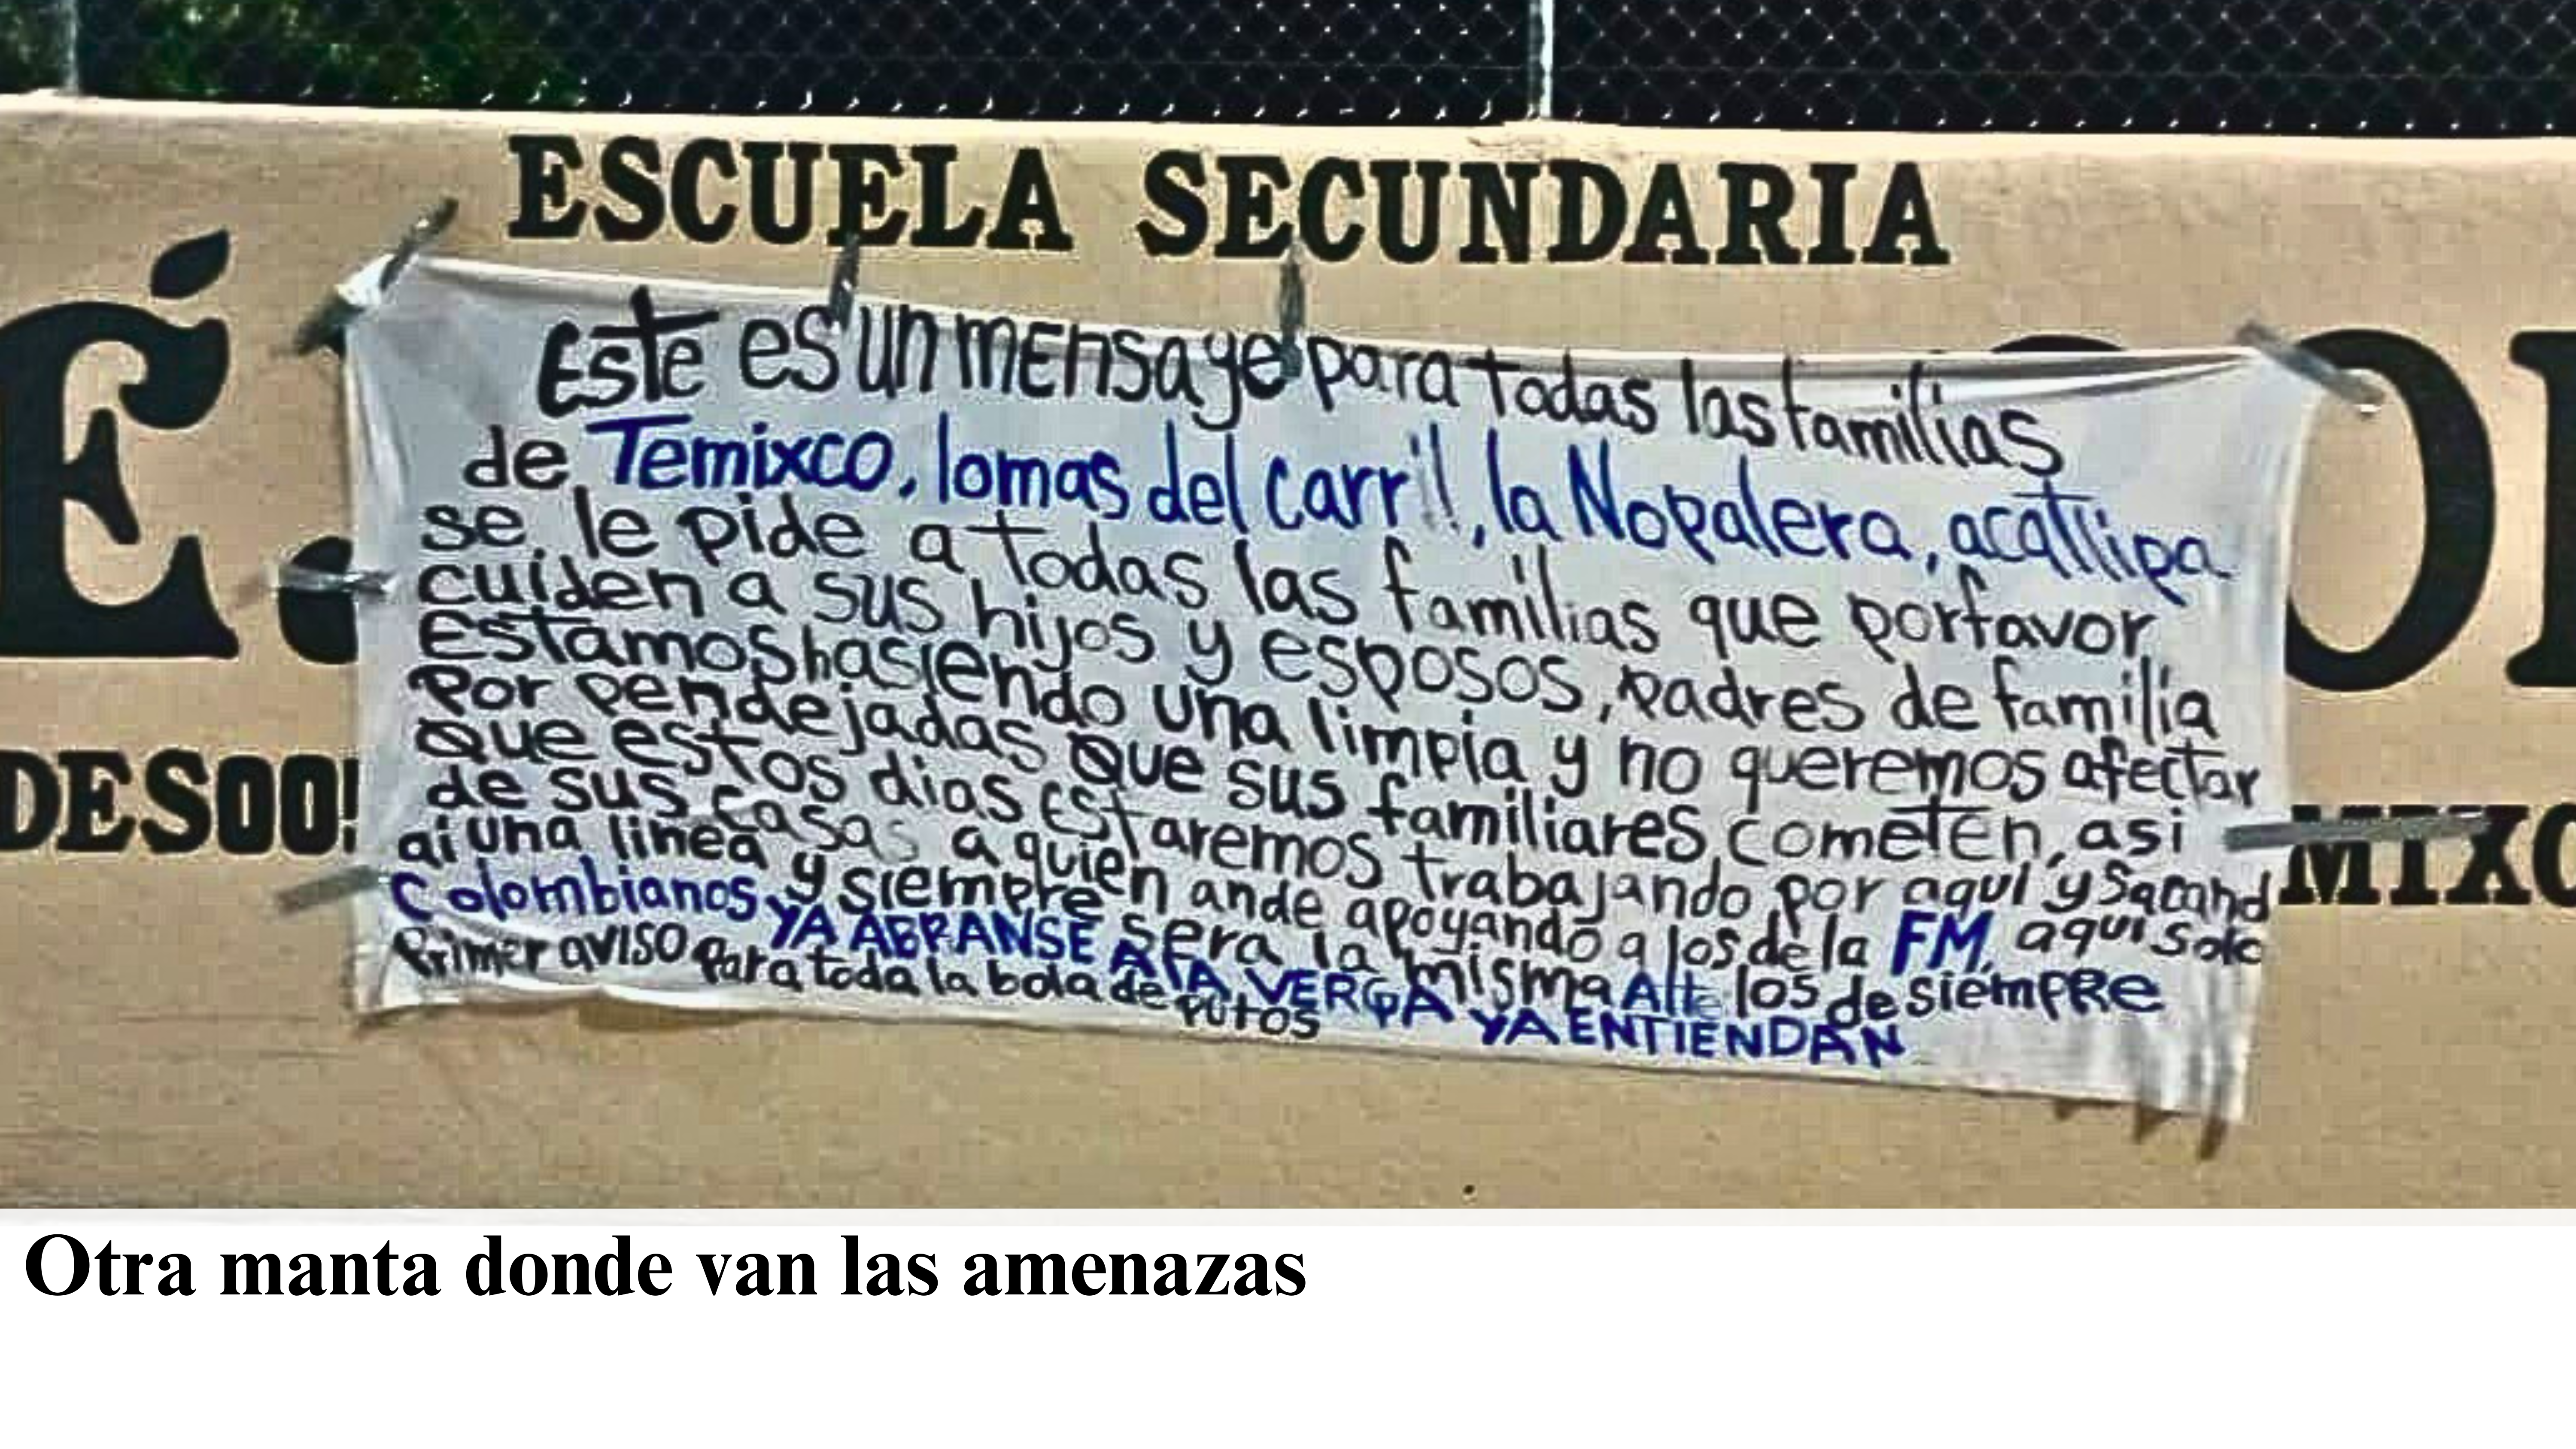 ESCUELA SECUNDARIA
É.
O
DES00
MIXC
Este es un mensaje para todas las familias
de Temixco, lomas del carril, la Nopalera, acatlipa
se le pide a todas las familias que porfavor
cuiden a sus hijos y esposos, padres de familia
Estamos hasiendo una limpia y no queremos afectar
Por pendejadas que sus familiares cometen, asi
que estos dias estaremos trabajando por aqui y sacand
de sus casas a quien ande apoyando a los de la FM, aqui solo
ai una linea y siempre sera la misma Alte los de siempre
Colombianos YA ABRANSE A LA VERGA YA ENTIENDAN
Primer aviso para toda la bola de putos
Otra manta donde van las amenazas